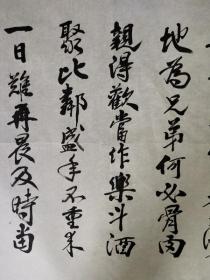 地為兄弟何必骨肉
親得歡當作樂斗酒
聚比鄰盛年不重來
一日難再晨及時當